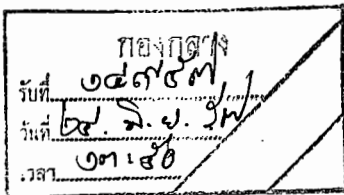 กองกลาง
รับที่ ๑๔๗๕๗
วันที่ ๒๔. มิ.ย. ๕๗
เวลา ๑๓:๕๖